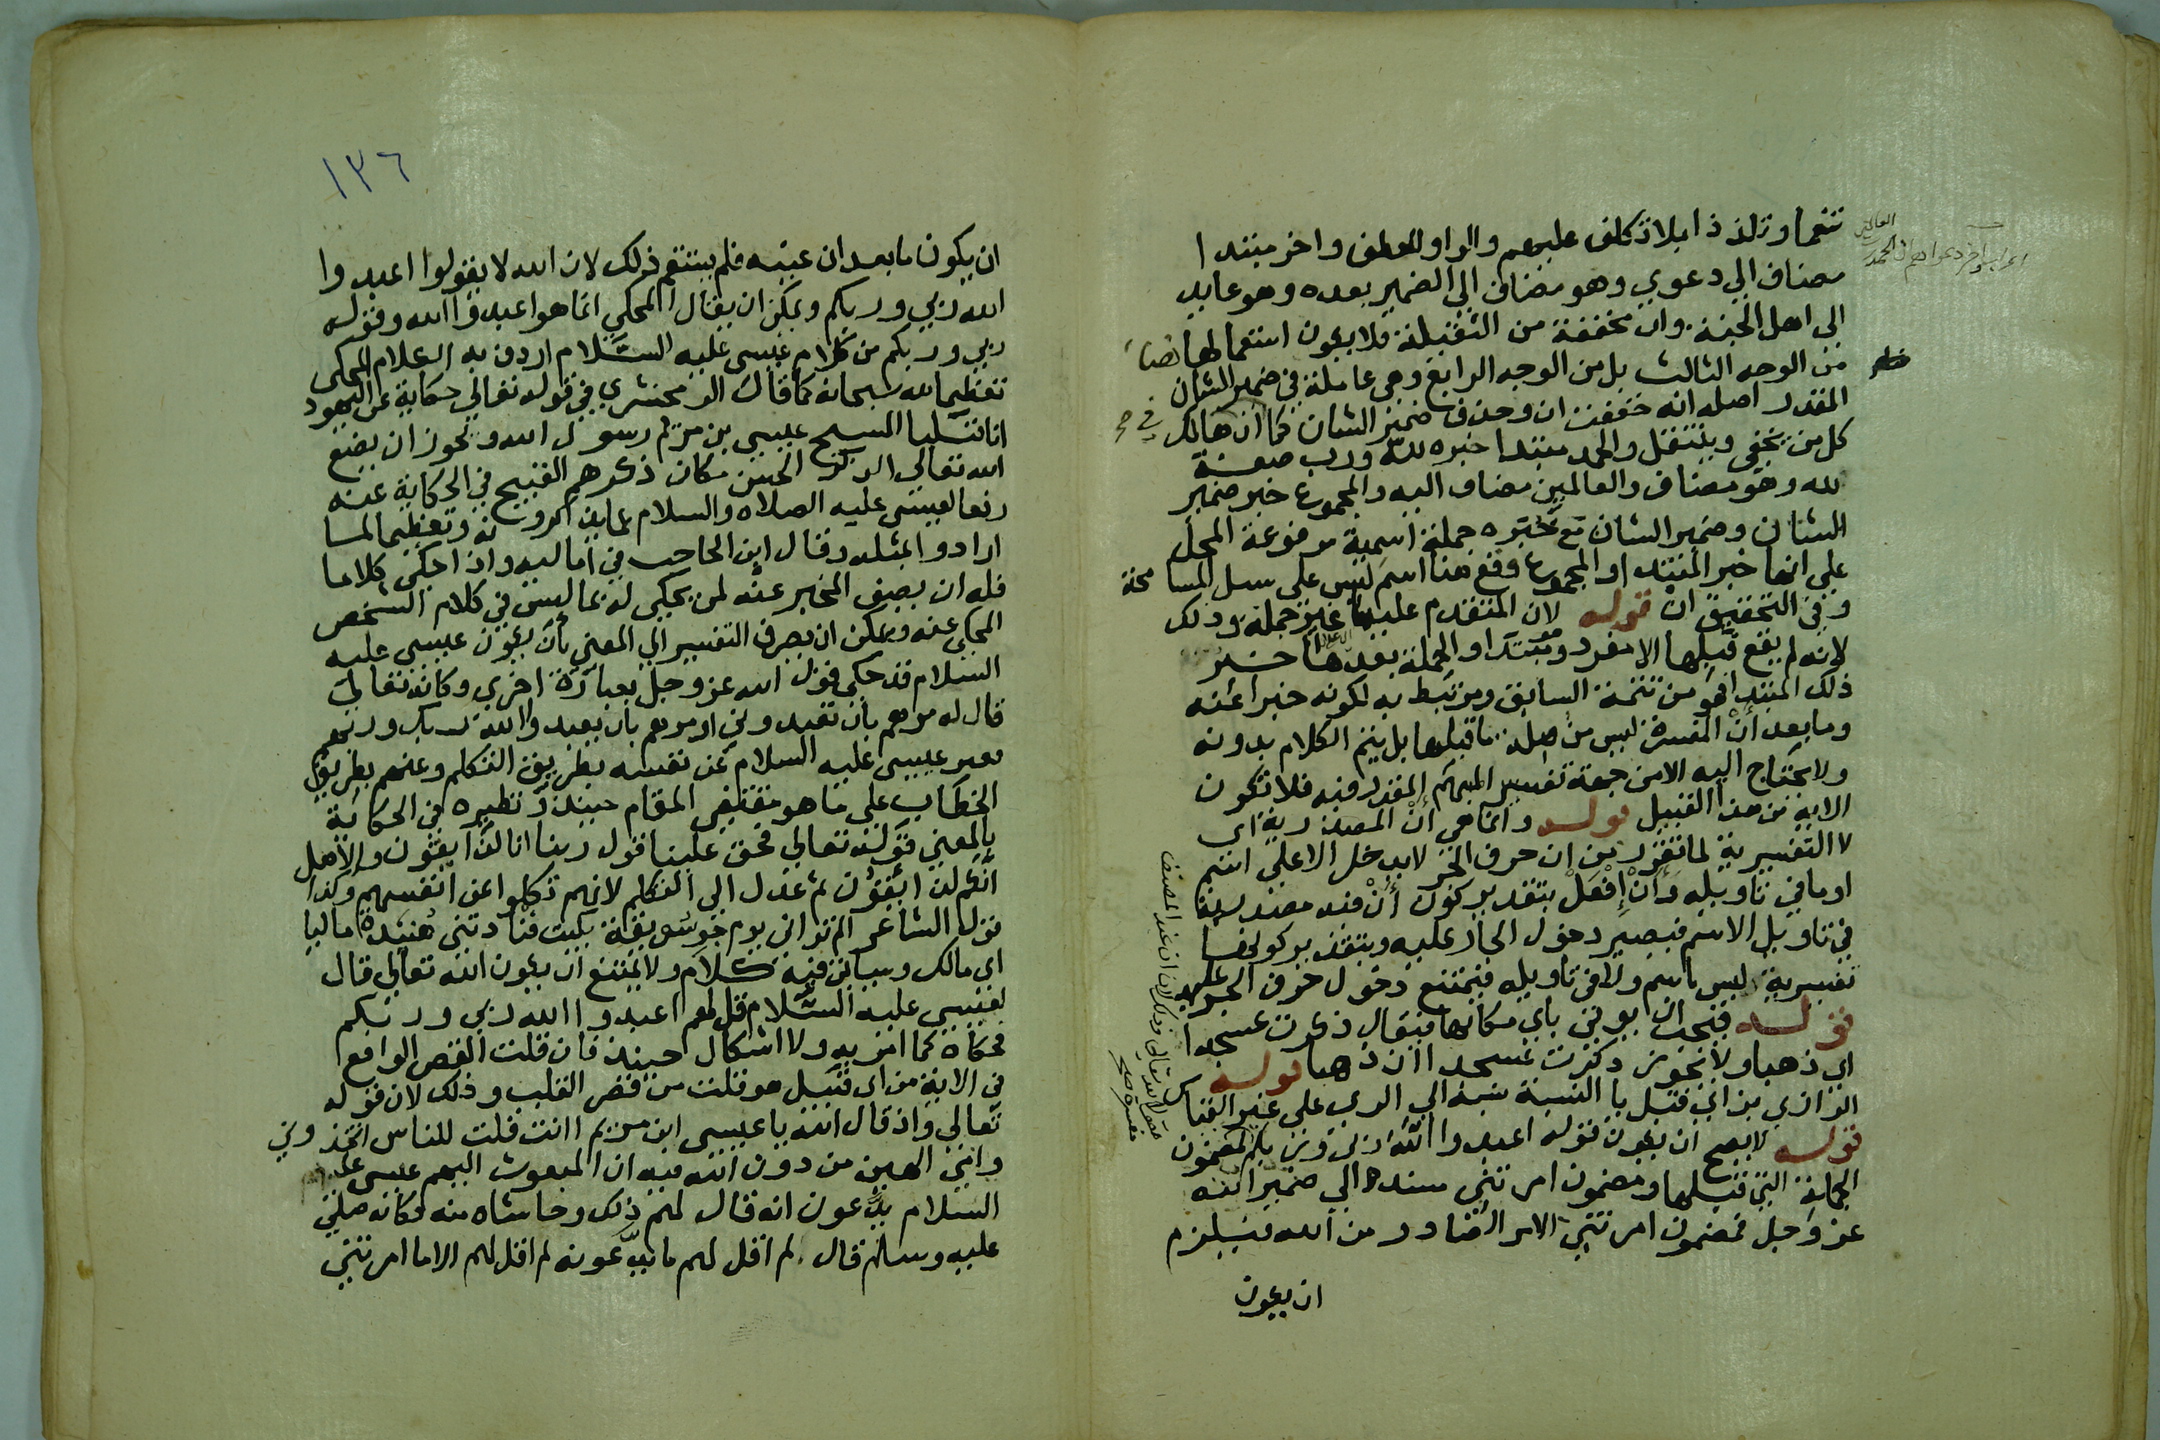 تنعما وتلذذا بلا تكلف عليهم والواو للعطف واخر مبتدا
مضاف الى دعوي وهو مضاف الى الضمير بعده وهو عايد
الى اهل الجنة وان مخففة من الثقيلة ولا يكون استعمالها
من الوجه الثالث بل من الوجه الرابع وهي عاملة في ضمير الشان
المقدر اصله انه خففت ان وحذف ضمير الشان كما ان هالك
كل من يخفى وينتعل والحمد مبتدا خبره لله ورب صفة
لله وهو مضاف والعالمين مضاف اليه والمجموع خبر ضمير
الشان وضمير الشان مع خبره جملة اسمية مرفوعة المحل
على انها خبر المبتدا والمجموع وقع هنا اسم ليس على سبيل المسامحة
وفي التحقيق ان قوله لان المتقدم عليها غير جملة وذلك
لانه لم يقع قبلها الا مفرد وهو مبتدا والجملة بعدها خبر
ذلك المبتدا فهو من تتمة السابق ومرتبط به لكونه خبرا عنه
وما بعد أنْ المفسرة ليس من صلة ما قبلها بل يتم الكلام بدونه
ولا يحتاج اليه الا من جهة تفسير المبهم المقدر فيه فلا تكون
الاية من هذا القبيل قوله وانما هي أنْ المصدرية اى
لا التفسيرية لما تقرر من ان حرف الجر لا يدخل الا على اسم
او ما في تاويله وَأنْ اِفْعَلْ بتقدير كون أنْ فيه مصدرية
في تاويل الاسم فيصير دخول الجار عليه وبتقدير كونها
تفسيرية ليس باسم ولا في تاويله فيمتنع دخول حرف الجر عليه
قوله فيجب ان يوتى باي مكانها فيقال ذكرت عسجدا
اي ذهبا ولا يجوز ذكرت عسجدا ان ذهبا قوله
الرازي من اي قبيل يا النسبة نسبة الى الري على غير القياس
قوله لا يصح ان يكون قوله اعبدوا الله ربي وربكم لمضمون
الجملة التي قبلها ومضمون امرتني مسندة الى ضمير الله
عز وجل فمضمون امرتني الامر الصادر من الله فيلزم
ان يكون
١٣٦
ان يكون ما بعد ان عينه فلم يمتنع ذلك لان الله لا يقولوا اعبدوا
الله ربي وربكم ويمكن ان يقال المحكي انما هو اعبدوا الله وقوله
ربي وربكم من كلام عيسى عليه السلام اردف به الكلام المحكي
تعظيما لله سبحانه كما قال الزمخشري في قوله تعالى حكاية عن اليهود
انا قتلنا المسيح عيسى بن مريم رسول الله ويجوز ان يضع
الله تعالى الذكر الحسن مكان ذكرهم القبيح في الحكاية عنه
رفعا لعيسى عليه الصلاة والسلام عما يذكرونه وتعظيما لما
ارادوا بمثله وقال ابن الحاجب في اماليه واذا حكى كلاما
فله ان يصف المخبر عنه لمن يحكى له بما ليس في كلام الشخص
المحكي عنه ويمكن ان يصرف التفسير الى المعنى بأن يكون عيسى عليه
السلام قد حكى قول الله عز وجل بعبارة اخرى وكانه تعالى
قال له مرهم بأن تعبدوني او مرهم بأن يعبدوا الله ربك وربهم
فعبر عيسى عليه السلام عن نفسه بطريق التكلم وعنهم بطريق
الخطاب على ما هو مقتضى المقام حينئذ ونظيره في الحكاية
بالمعنى قوله تعالى فحق علينا قول ربنا انا لذائقون والاصل
انكم لذائقون ثم عدل الى التكلم لانهم تكلموا عن انفسهم وكذا
قول الشاعر الم تراني يوم جوّ سويقة بكيت فنادتني هُنيدة ماليا
اي مالك وسياتي فيه كلام ولا يمتنع ان يكون الله تعالى قال
لعيسى عليه السلام قل لهم اعبدوا الله ربي وربكم
فحكاه كما امر به ولا اشكال حينئذ فان قلت القصر الواقع
في الاية من اى قبيل هو قلت من قصر القلب وذلك لان قوله
تعالى واذ قال الله يا عيسى ابن مريم اانت قلت للناس اتخذوني
وامي الهين من دون الله فيه ان المبعوث اليهم عيسى عليه
السلام يدعون انه قال لهم ذلك وحاشاه منه فكانه صلى
عليه وسلم قال لم اقل لهم ما يدّعونه لم اقل لهم الا ما امرتني